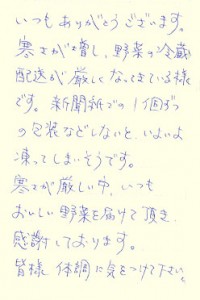 いつもありがとうございます。
寒さが増し、野菜の冷蔵
配送が厳しくなってきている様
です。新聞紙での1個ずつ
の包装などしないと、いよいよ
凍ってしまいそうです。
寒さが厳しい中、いつも
おいしい野菜を届けて頂き、
感謝しております。
皆様 体調に気をつけて下さい。